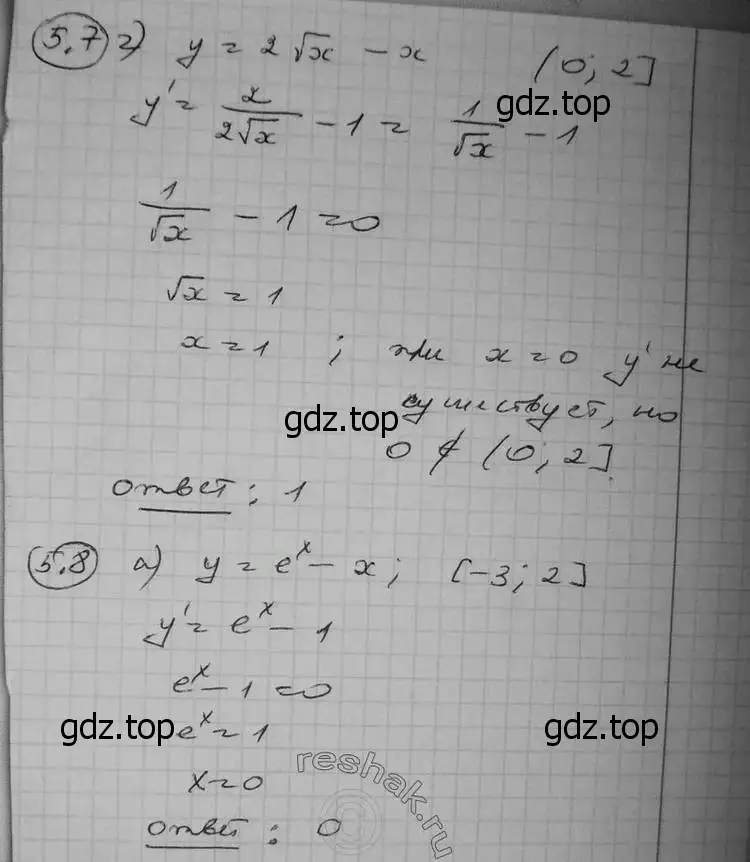 5.7 г) y = 2√x − x (0; 2]
gdz.top
y' = 2/(2√x) − 1 = 1/√x − 1
1/√x − 1 = 0
√x = 1
x = 1 ; при x = 0 y' не
существует, но
gdz.top
0 ∉ (0; 2]
ответ: 1
5.8 а) y = e^x − x; [−3; 2]
y' = e^x − 1
e^x − 1 = 0
gdz.top e^x = 1 gdz.top
x = 0
reshak.ru
ответ: 0